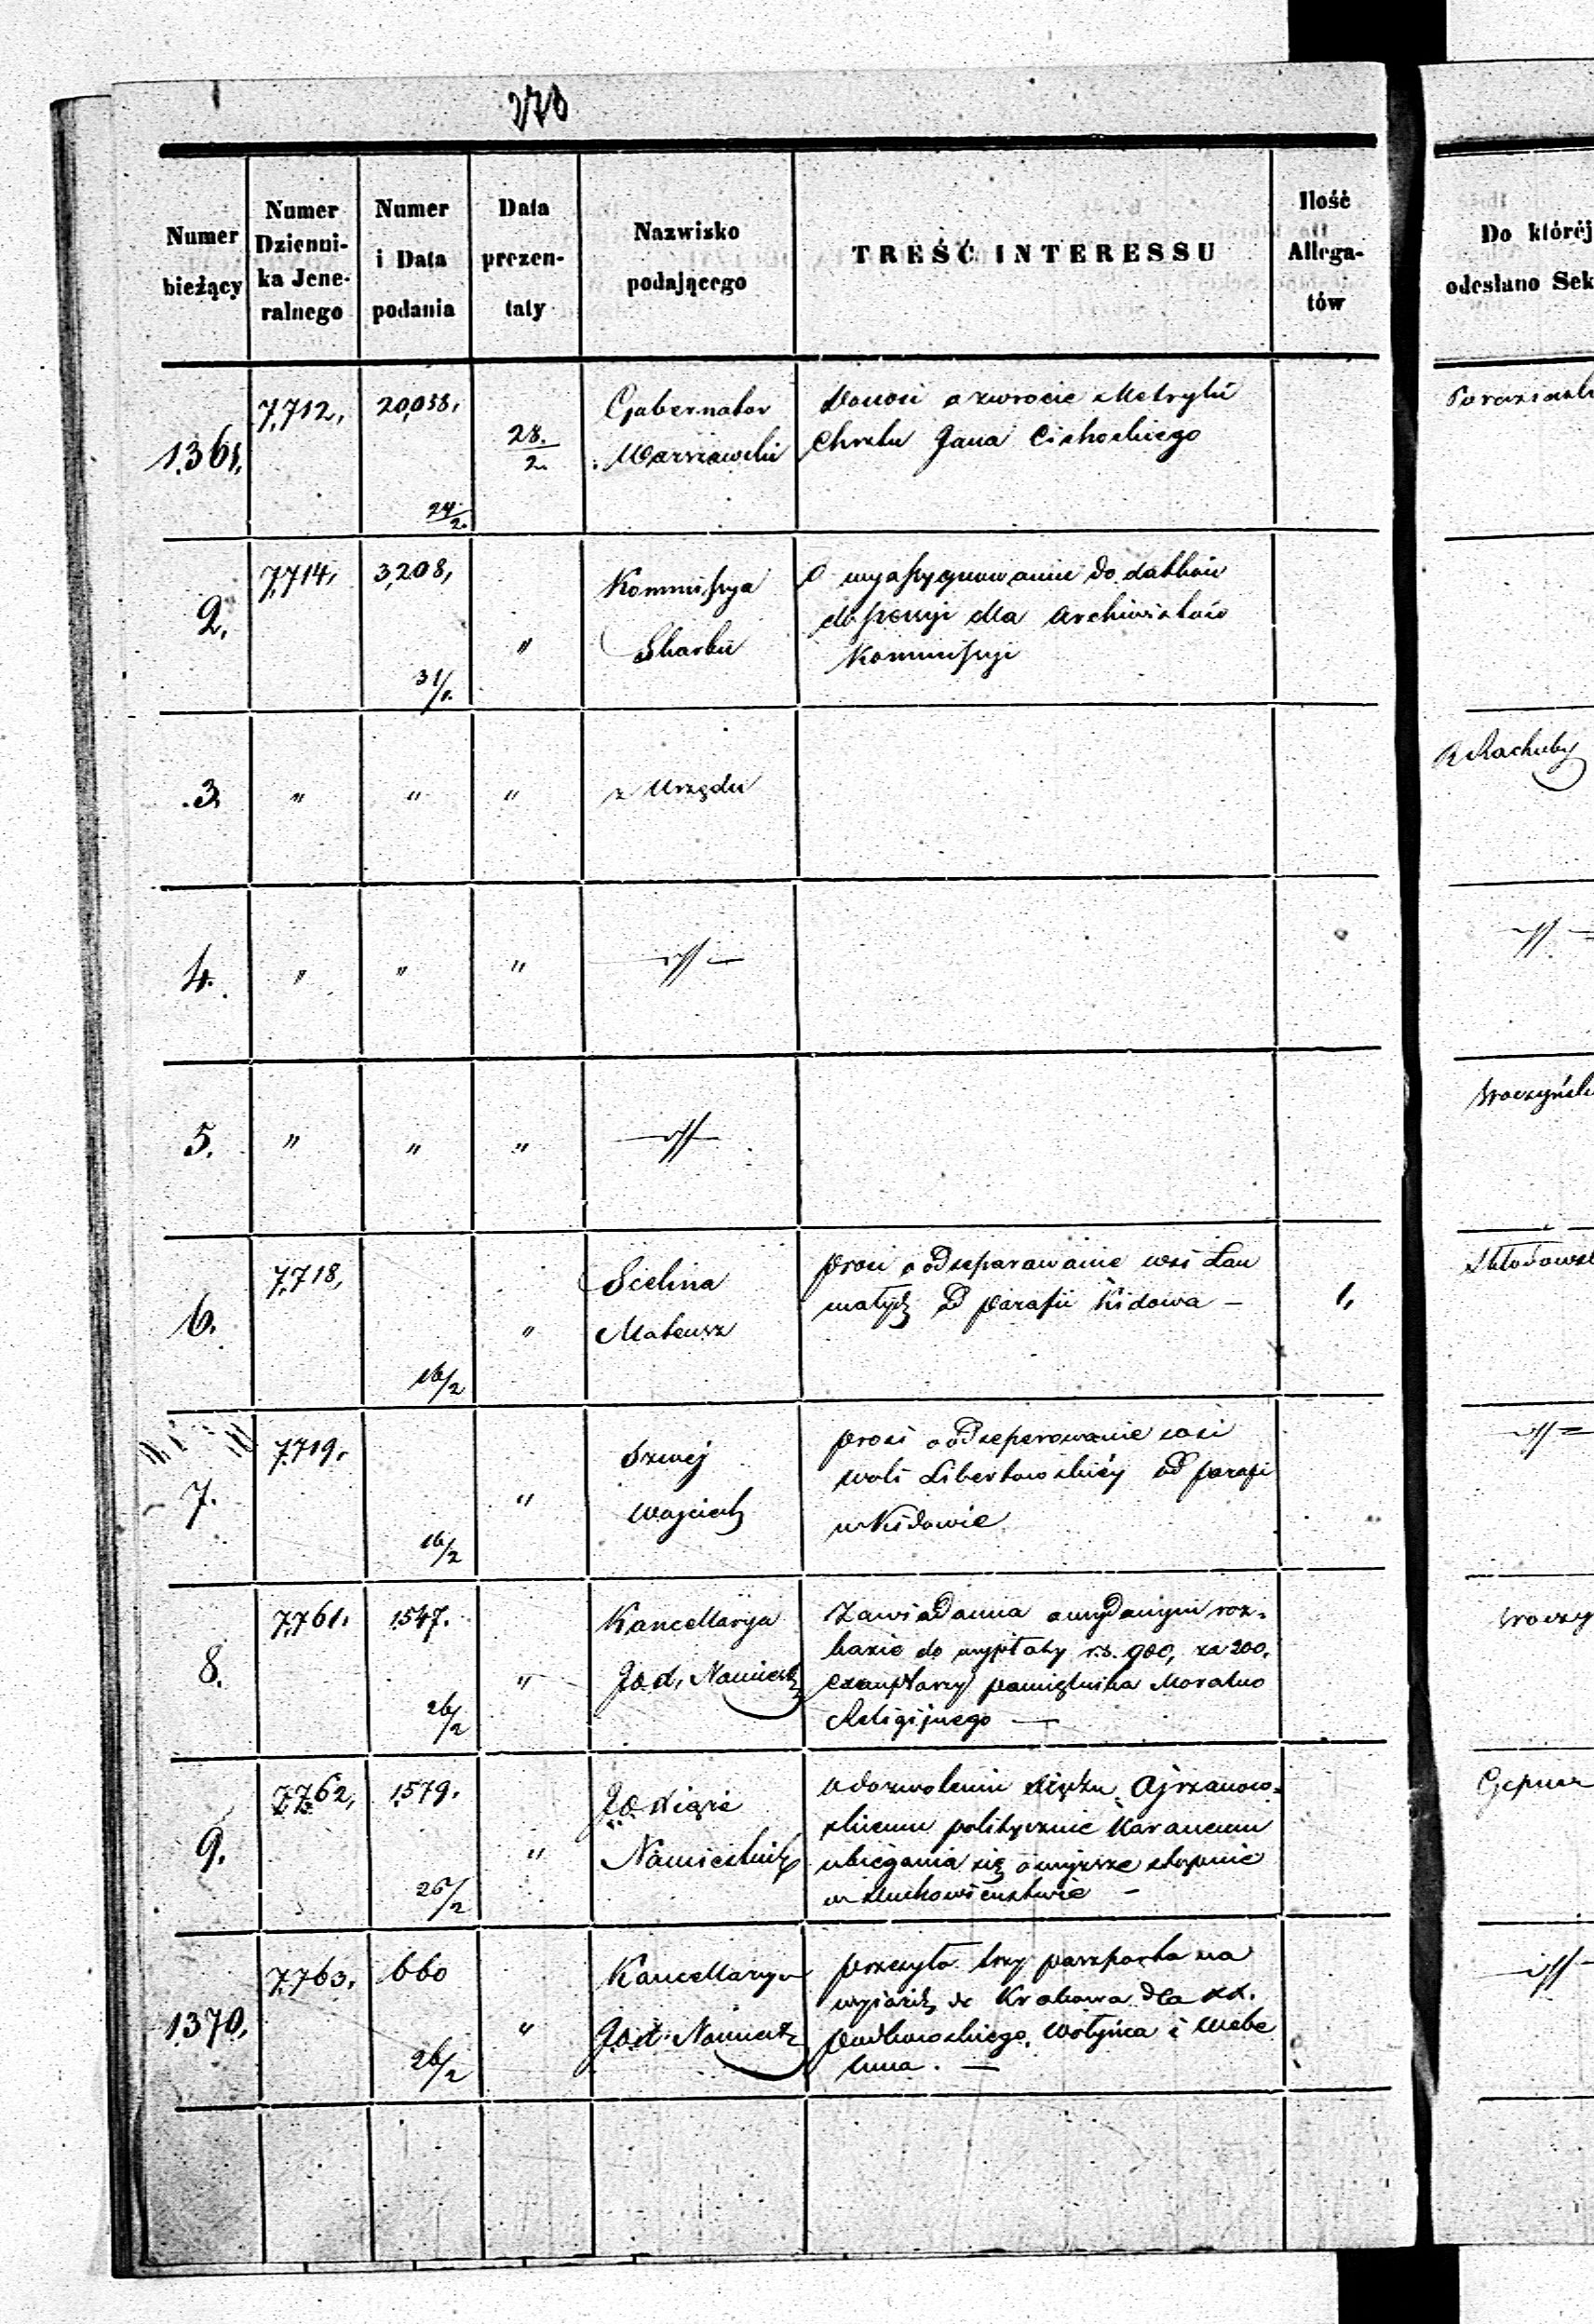 270
Numer bieżący
Numer Dzienni- ka Jene- ralnego
Numer i Data podania
Data prezen- taty
Nazwisko podającego
TREŚĆ INTERESSU
Ilość Allega- tów
Do któréj
odesłano Sek
1361.
7,712,
20,038,
24/2.
28./2.
Gubernator
Warszawski
Donosi o zwrocie Metryki
Chrztu Jana Cichockiego
2.
7,714,
3,208,
31/1.
"
Kommissya
Skarbu
O wyassygnowanie dodatków
do pensyi dla Archiwistów
Kommissyi
3.
"
"
"
z Urzędu
Rachuby
4.
"
"
"
5.
"
"
"
6.
7,718,
16/2
"
Scelina
Mateusz
prosi o odseparowanie wsi
od parafii Kidowa —
1,
7.
7,719.
16/2
"
Szwej
Wojciech
prosi o odseperowanie wsi
woli Libertowskiéy od parafi
w Kidowie
8.
7,761.
1,547.
26/2
"
Kancellarya
JO. X. Namiest
Zawiadamia o wydanym roz-
kazie do wypłaty r.s. 900, za 200.
exemplarzy pamiętnika Moralno
Religijnego —
9.
7,762,
1,579.
25/2
"
JO Xiąże
Namiestnik
o dozwoleniu Xiędzu Ajrzanow-
skiemu politycznie karanemu
ubiegania się o wyższe stopnie
w duchowieństwie —
1370.
7,763.
660
26/2
"
Kancellarya
JO. X. Namiest
przesyła trzy paszporta na
wyjazd do Krakowa dla XX.
Wołyńca i Webe
—